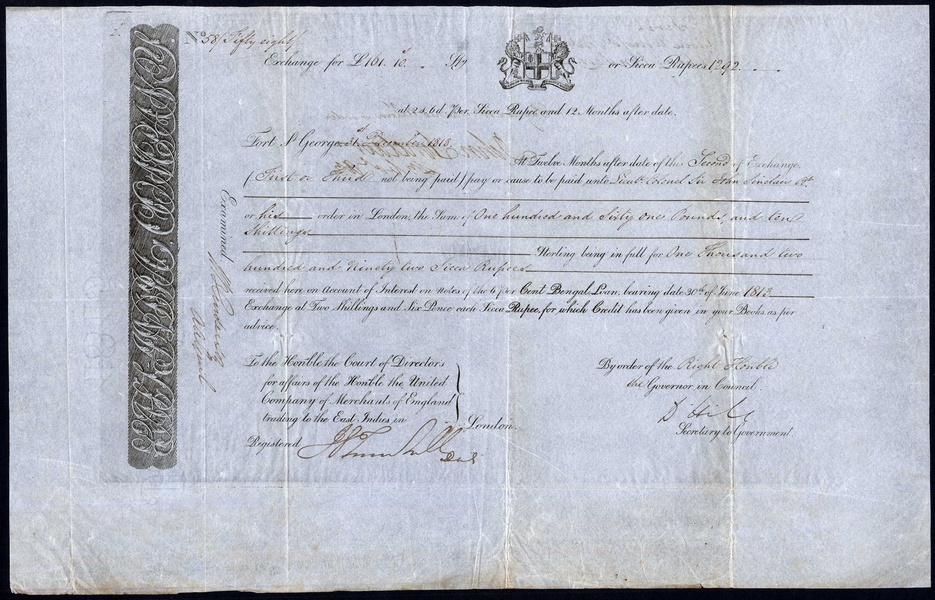 2.
No. 58 / Fifty eight /
Exchange for £161. 10 Stg or Sicca Rupees 1292
at 2s. 6d. Per. Sicca Rupee and 12 Months after date.
Fort St George 1818
At Twelve Months after date of this Second of Exchange
(First or Third not being paid) pay or cause to be paid unto Lieut. Colonel Sir John Sinclair Bt.
or his order in London, the Sum of One hundred and Sixty one Pounds and ten
Shillings
Sterling being in full for One Thousand two
hundred and Ninety two Sicca Rupees
received here on Account of Interest on Notes of the 6 per Cent Bengal Loan, bearing date 30th of June 1813
Exchange at Two Shillings and Six Pence each Sicca Rupee, for which Credit has been given in your Books, as per
advice.
Examined
To the Honble the Court of Directors
for affairs of the Honble the United
Company of Merchants of England
trading to the East Indies in London.
Registered
By order of the Right Honble
the Governor in Council
D Hill
Secretary to Government